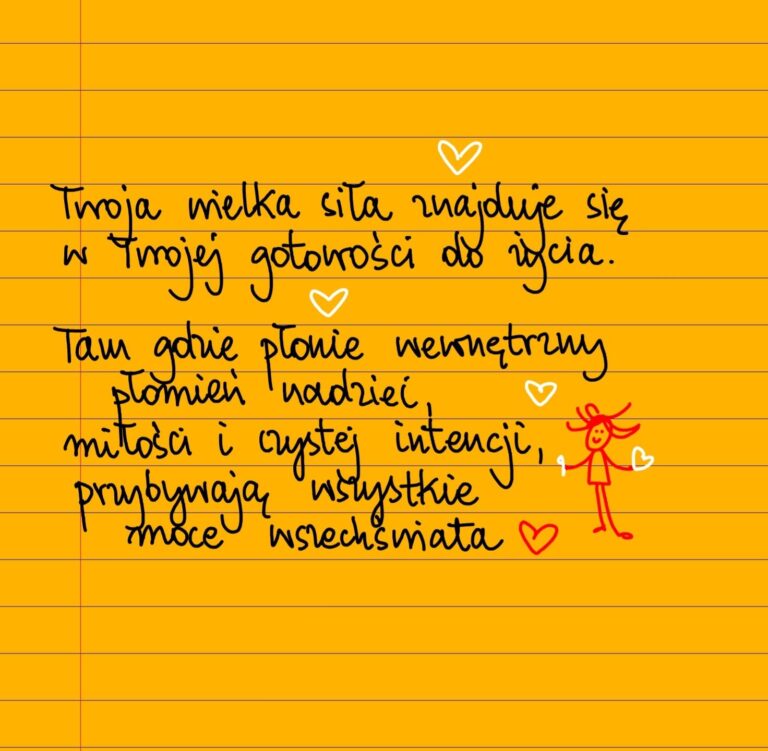 Twoja wielka siła znajduje się
w Twojej gotowości do życia.
Tam gdzie płonie wewnętrzny
płomień nadziei,
miłości i czystej intencji,
przybywają wszystkie
moce wszechświata